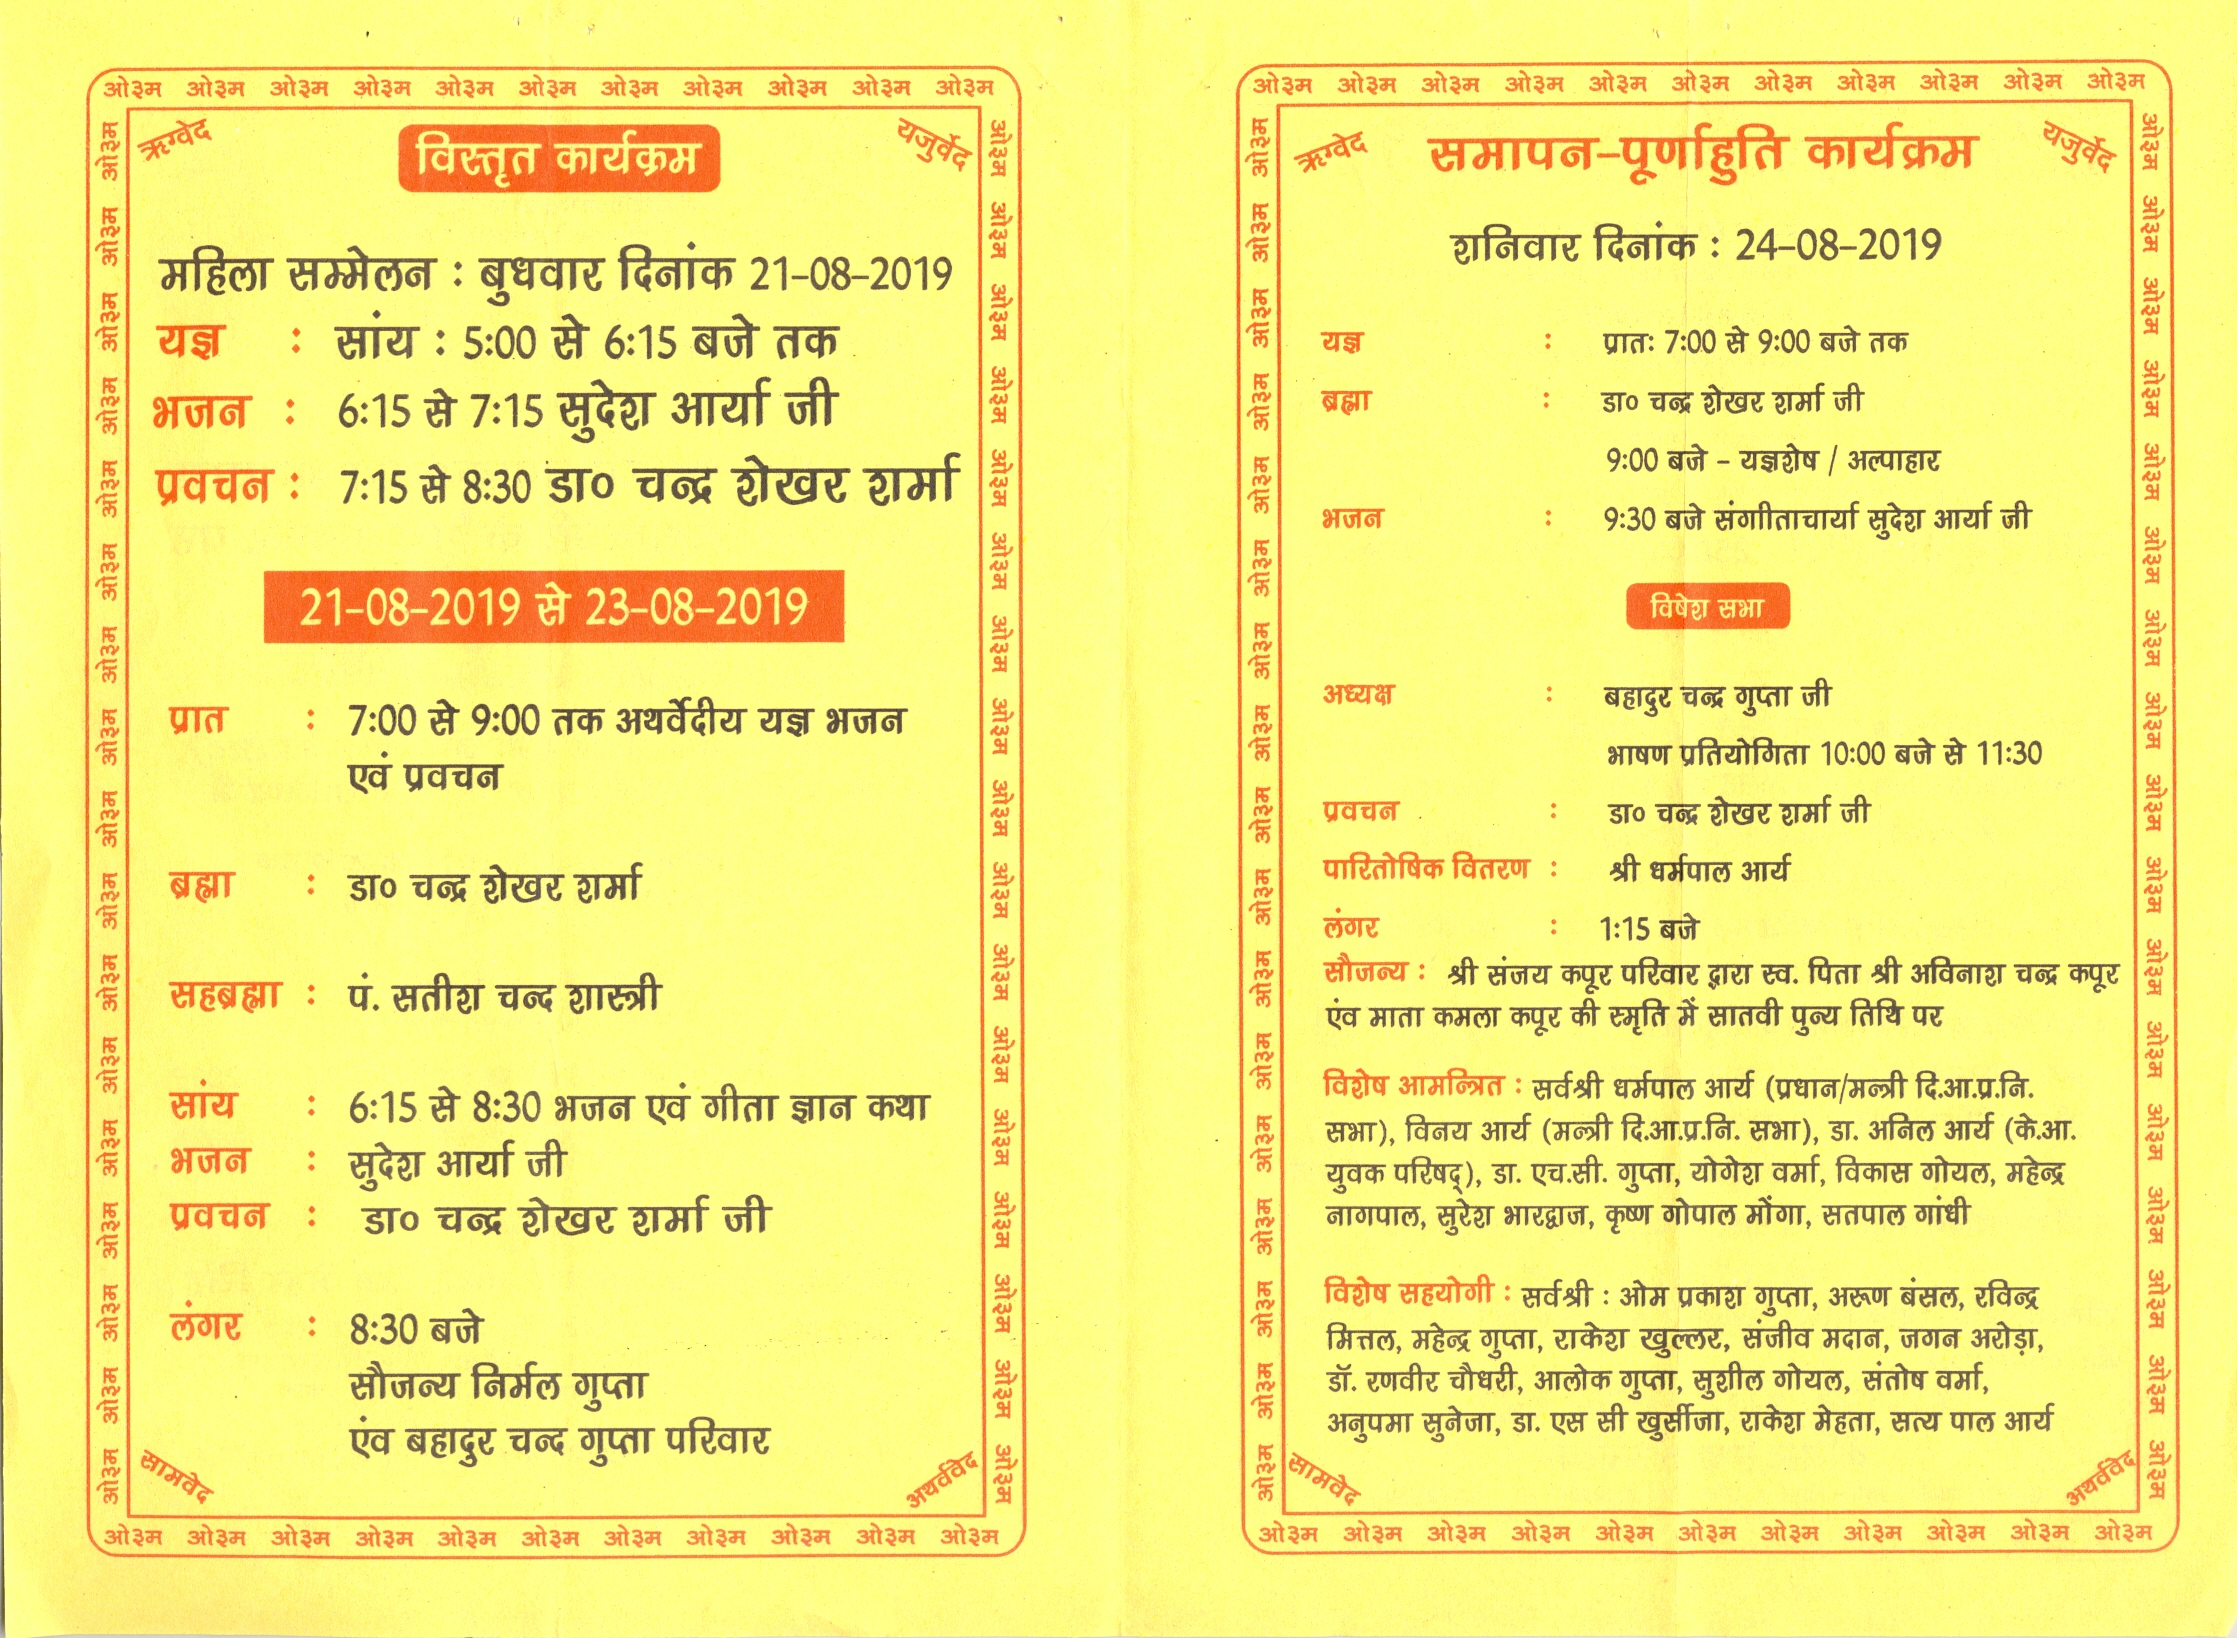 ओ३म ओ३म ओ३म ओ३म ओ३म ओ३म ओ३म ओ३म ओ३म ओ३म ओ३म
ऋग्वेद
यजुर्वेद
विस्तृत कार्यक्रम
महिला सम्मेलन : बुधवार दिनांक 21-08-2019
यज्ञ : सांय : 5:00 से 6:15 बजे तक
भजन : 6:15 से 7:15 सुदेश आर्या जी
प्रवचन : 7:15 से 8:30 डा० चन्द्र शेखर शर्मा
21-08-2019 से 23-08-2019
प्रात : 7:00 से 9:00 तक अथर्वेदीय यज्ञ भजन
एवं प्रवचन
ब्रह्मा : डा० चन्द्र शेखर शर्मा
सहब्रह्मा : पं. सतीश चन्द शास्त्री
सांय : 6:15 से 8:30 भजन एवं गीता ज्ञान कथा
भजन : सुदेश आर्या जी
प्रवचन : डा० चन्द्र शेखर शर्मा जी
लंगर : 8:30 बजे
सौजन्य निर्मल गुप्ता
एंव बहादुर चन्द गुप्ता परिवार
सामवेद
अथर्ववेद
ओ३म ओ३म ओ३म ओ३म ओ३म ओ३म ओ३म ओ३म ओ३म ओ३म ओ३म
ओ३म ओ३म ओ३म ओ३म ओ३म ओ३म ओ३म ओ३म ओ३म ओ३म ओ३म
ऋग्वेद
यजुर्वेद
समापन-पूर्णाहुति कार्यक्रम
शनिवार दिनांक : 24-08-2019
यज्ञ : प्रातः 7:00 से 9:00 बजे तक
ब्रह्मा : डा० चन्द्र शेखर शर्मा जी
9:00 बजे - यज्ञशेष / अल्पाहार
भजन : 9:30 बजे संगाीताचार्या सुदेश आर्या जी
विषेश सभा
अध्यक्ष : बहादुर चन्द्र गुप्ता जी
भाषण प्रतियोगिता 10:00 बजे से 11:30
प्रवचन : डा० चन्द्र शेखर शर्मा जी
पारितोषिक वितरण : श्री धर्मपाल आर्य
लंगर : 1:15 बजे
सौजन्य : श्री संजय कपूर परिवार द्वारा स्व. पिता श्री अविनाश चन्द्र कपूर
एंव माता कमला कपूर की स्मृति में सातवी पुन्य तिथि पर
विशेष आमन्त्रित : सर्वश्री धर्मपाल आर्य (प्रधान/मन्त्री दि.आ.प्र.नि.
सभा), विनय आर्य (मन्त्री दि.आ.प्र.नि. सभा), डा. अनिल आर्य (के.आ.
युवक परिषद्), डा. एच.सी. गुप्ता, योगेश वर्मा, विकास गोयल, महेन्द्र
नागपाल, सुरेश भारद्वाज, कृष्ण गोपाल मोंगा, सतपाल गांधी
विशेष सहयोगी : सर्वश्री : ओम प्रकाश गुप्ता, अरूण बंसल, रविन्द्र
मित्तल, महेन्द्र गुप्ता, राकेश खुल्लर, संजीव मदान, जगन अरोड़ा,
डॉ. रणवीर चौधरी, आलोक गुप्ता, सुशील गोयल, संतोष वर्मा,
अनुपमा सुनेजा, डा. एस सी खुर्सीजा, राकेश मेहता, सत्य पाल आर्य
सामवेद
अथर्ववेद
ओ३म ओ३म ओ३म ओ३म ओ३म ओ३म ओ३म ओ३म ओ३म ओ३म ओ३म